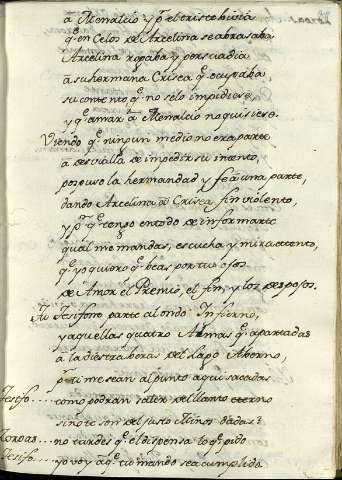 à Menalcio y pr el crisco busia
q̃ en celos de Arcelina se abrasaba
Arcelina rogaba y persuadia
à su hermana Crisea q̃ ocupaba,
su contento, q̃ no se lo impidiese,
y q̃ amar à Menalcio no quisiese.
Viendo q̃ ningun medio no era parte
à desvialla de impedir su intento,
pospuso la hermandad y fe à una parte,
dando Arcelina à Crisea fin violento,
y pr q̃ tengo en todo de informarte
qual me mandas, escucha y mira atento,
q̃ yo quiero q̃ beas por tus ojos
de Amor el Premio, el fin, y los despojos.
Tu Tesifone parte al ondo Infierno,
y aquellas quatro Almas q̃ apartadas
à la diestra beras del Lago Aberno,
pr ti me sean al punto aqui sacadas
Tesifo.... como podran salir del llanto eterno
sino te son del justo Minos dadas?
no tardes q̃ el dispensa lo q̃ pido
Tesifo.... yo voy à q̃ tu mando sea cumplido.